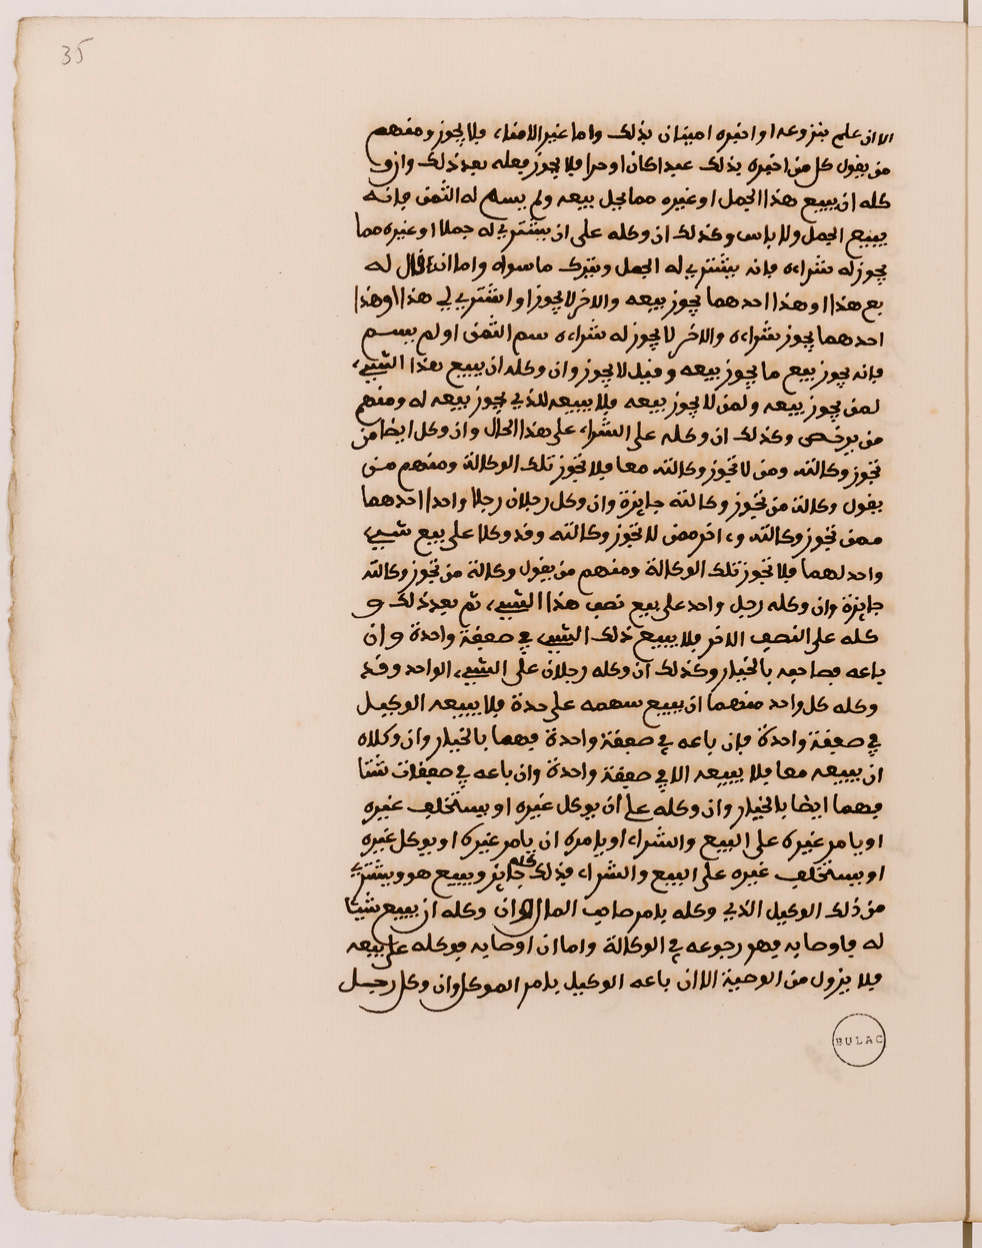 35
الا ان علم بنزوعه او اخبره امينان بذلك واما غير الامناء فلا يجوز ومنهم
من يقول كل من اخبره بذلك عبدا كان او حرا فلا يجوز فعله بعد ذلك وان و
كله ان يبيع هذا الجمل او غيره مما يحل بيعه ولم يسم له الثمن فإنه
يبيع الجمل ولا باس وكذلك ان وكله على ان يشتري له جملا او غيره مما
يجوز له شراءه فإنه يشتري له الجمل ويترك ما سواه واما ان قال له
بع هذا او هذا احدهما يجوز بيعه والاخر لا يجوز او اشتري لي هذا او هذا
احدهما يجوز شراءه والاخر لا يجوز له شراءه سم الثمن او لم يسم
فإنه يجوز بيع ما يجوز بيعه وقيل لا يجوز وان وكله ان يبيع هذا الشيء
لمن يجوز بيعه ولمن لا يجوز بيعه فلا يبيعه للذي يجوز بيعه له ومنهم
من يرخص وكذلك ان وكله على الشراء على هذا الحال وان وكل ايضا من
تجوز وكالته ومن لا تجوز وكالته معا فلا تجوز تلك الوكالة ومنهم من
يقول وكالة من تجوز وكالته جايزة وان وكل رجلان رجلا واحدا احدهما
ممن تجوز وكالته وءاخر ممن لا تجوز وكالته وقد وكلا على بيع شيء
واحد لهما فلا تجوز تلك الوكالة ومنهم من يقول وكالة من تجوز وكالته
جايزة وان وكله رجل واحد على بيع نصف هذا الشيء ثم بعد ذلك و
كله على النصف الاخر فلا يبيع ذلك الشيء في صفقة واحدة وان
باعه فصاحبه بالخيار وكذلك ان وكله رجلان على الشيء الواحد وقد
وكله كل واحد منهما ان يبيع سهمه على حدة فلا يبيعه الوكيل
في صفقة واحدة فإن باعه في صفقة واحدة فهما بالخيار وان وكلاه
ان يبيعه معا فلا يبيعه الا في صفقة واحدة وان باعه في صفقات شتا
فهما ايضا بالخيار وان وكله على ان يوكل غيره او يستخلف غيره
او يامر غيره على البيع والشراء او يامره ان يامر غيره او يوكل غيره
او يستخلف غيره على البيع والشراء فذلك كله جايز ويبيع هو ويشتري
من ذلك الوكيل الذي وكله بامر صاحب المال وان وكله ان يبيع شيئا
له فاوصا به فهو رجوعه في الوكالة واما ان اوصا به فوكله على بيعه
فلا يزول من الوصية الا ان باعه الوكيل بامر الموكل وان وكل رجل
BULAC